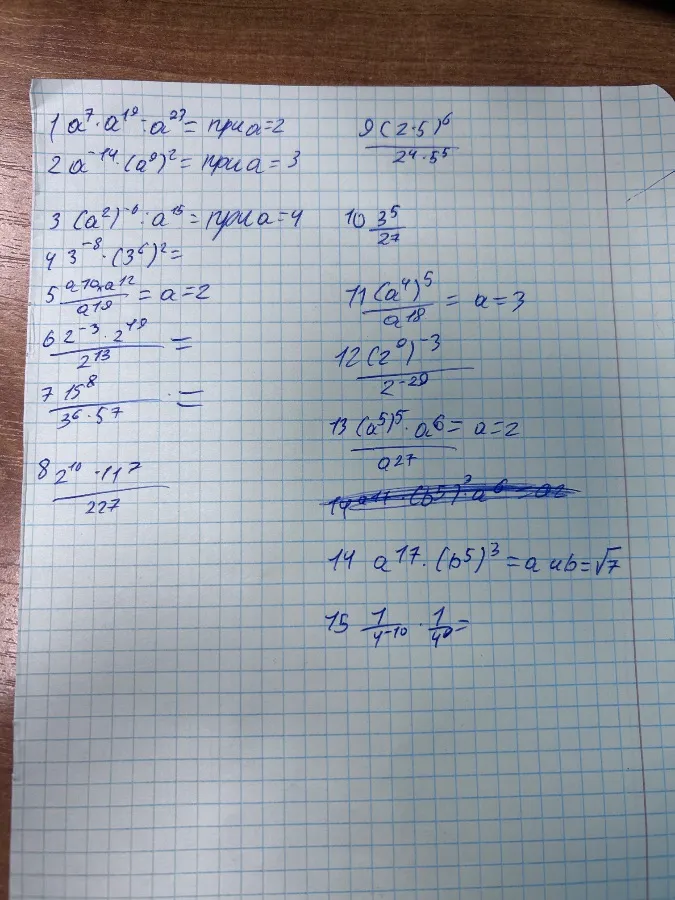 1 a⁷·a¹⁹:a²³= при a=2
2 a⁻¹⁴·(a⁹)²= при a=3
3 (a²)⁻⁶:a¹⁵= при a=4
4 3⁻⁸·(3⁶)²=
5 a10·a¹²/a19 = a=2
6 2⁻³·2¹⁹/2¹³ =
7 15⁸/3⁶·5⁷ =
8 2¹⁰·11⁷/227
9 (2·5)⁶/2⁴·5⁵
10 3⁵/27
11 (a⁴)⁵/a18 = a=3
12 (2⁹)⁻³/2⁻²⁹
13 (a⁵)⁵·a⁶/a27 = a=2
14 a¹⁷·(b⁵)³= a и b=√7
15 1/4⁻¹⁰·1/4⁹=